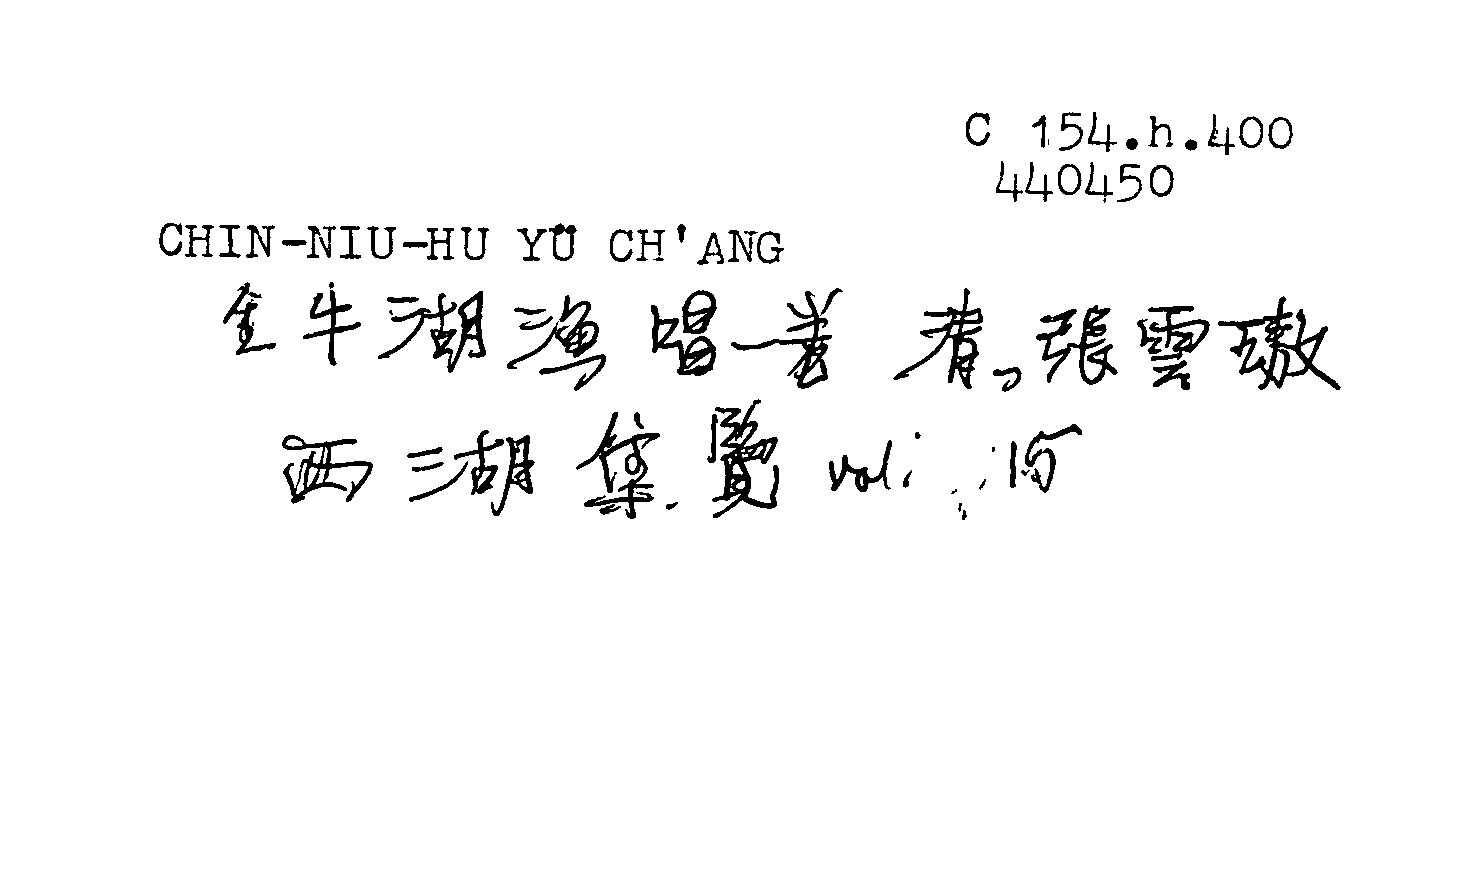 C 154.h.400
440450
CHIN-NIU-HU YÜ CH'ANG
金牛湖漁唱一卷 清。張雲璈
西湖集覽 vol: 15